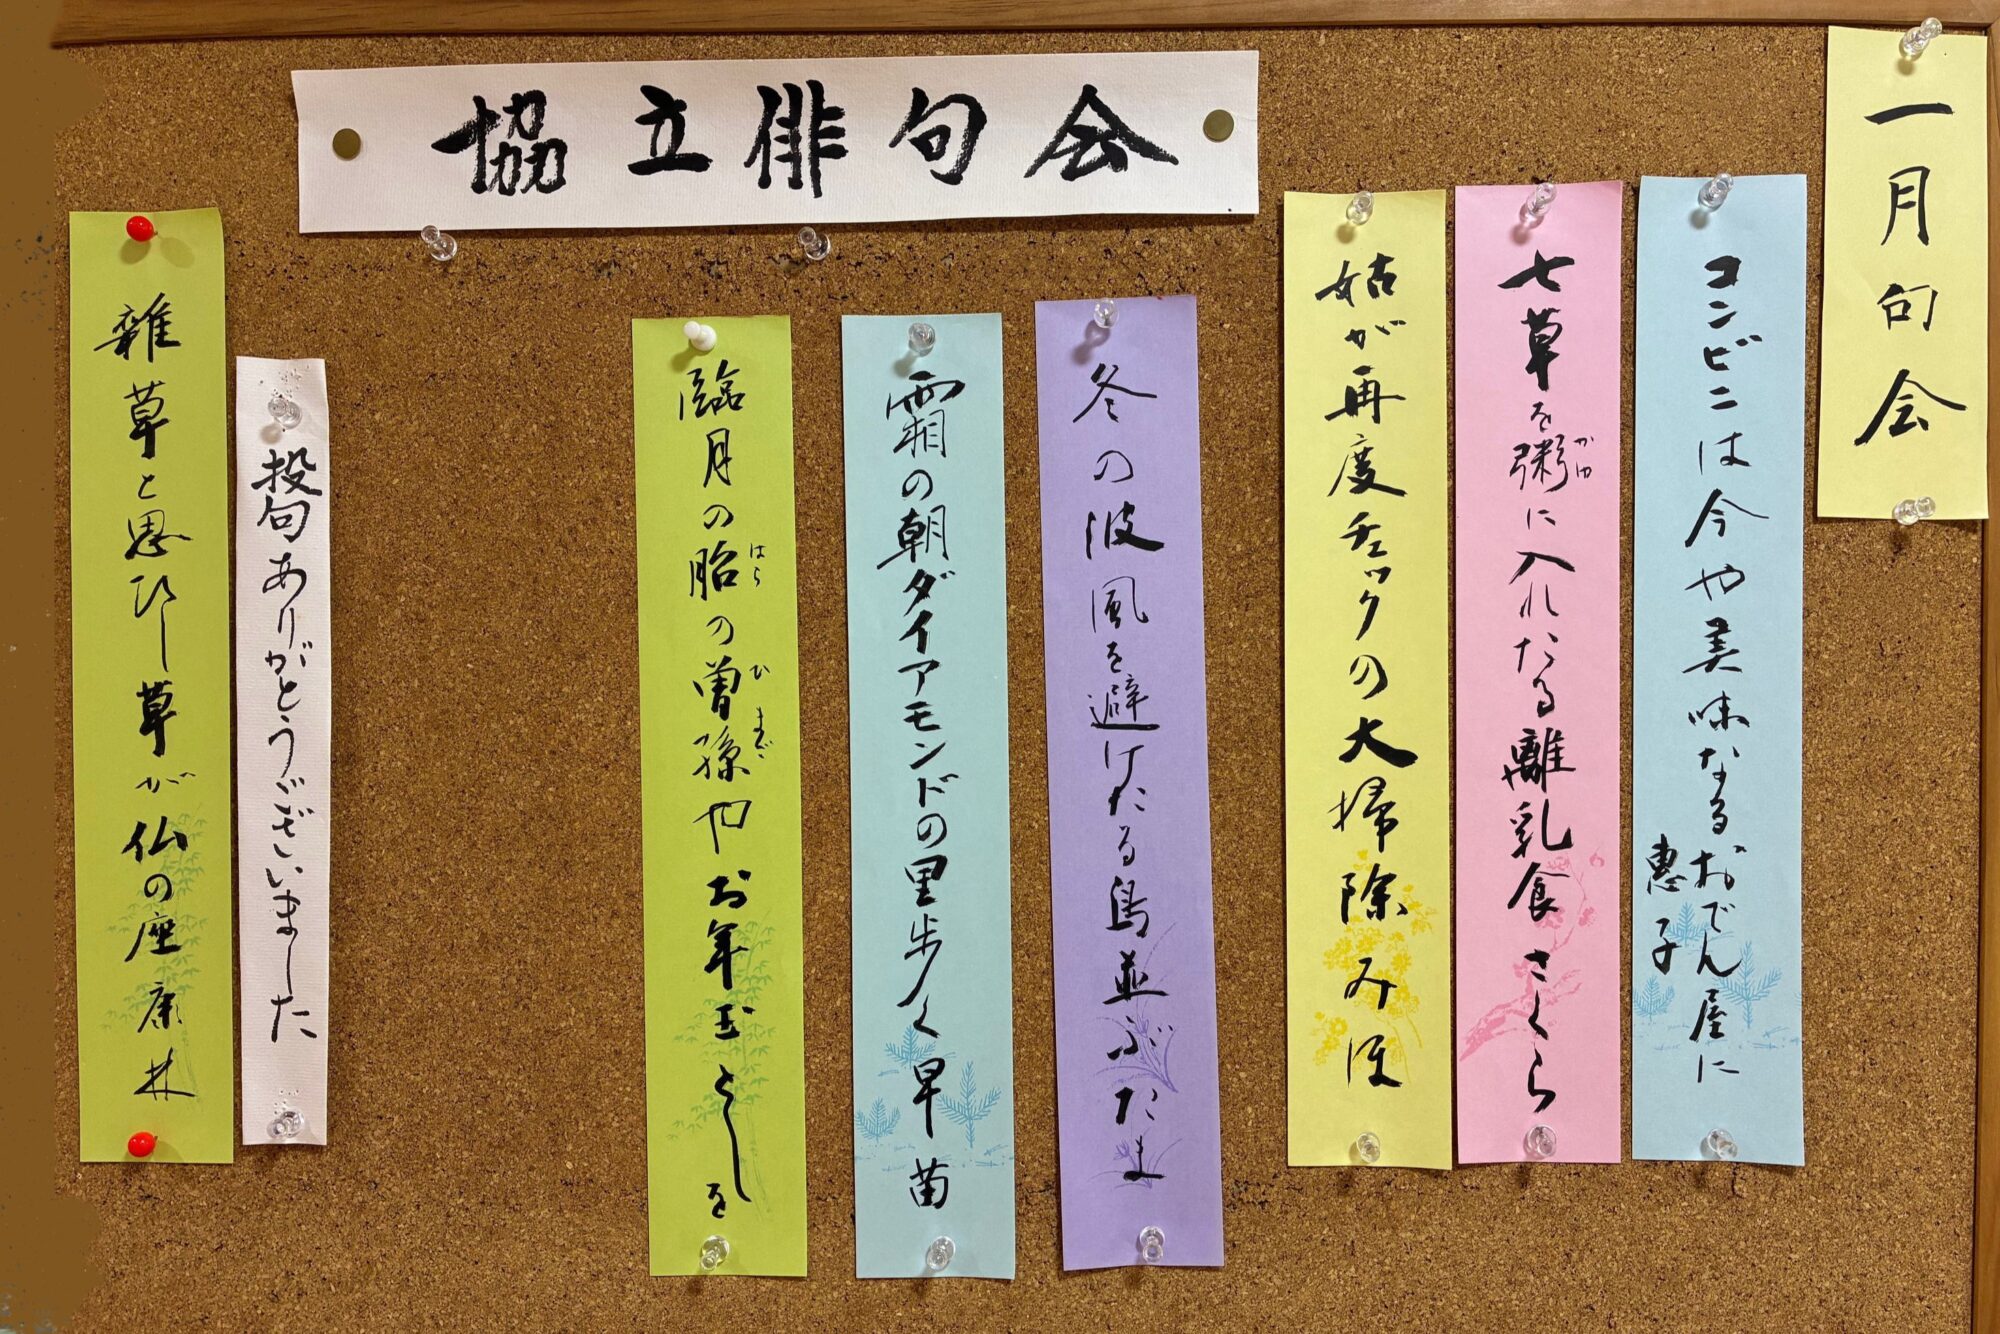 協立俳句会
一月句会
コンビニは今や美味なるおでん屋に
恵子
七草を粥に入れたる離乳食 さくら
かゆ
姑が再度チェックの大掃除 みほ
冬の波風を避けたる島並ぶ たま
霜の朝ダイアモンドの里歩く 早苗
臨月の胎の曽孫やお年玉 としを
はら
ひまご
投句ありがとうございました
雑草と思ひし草が仏の座 康林